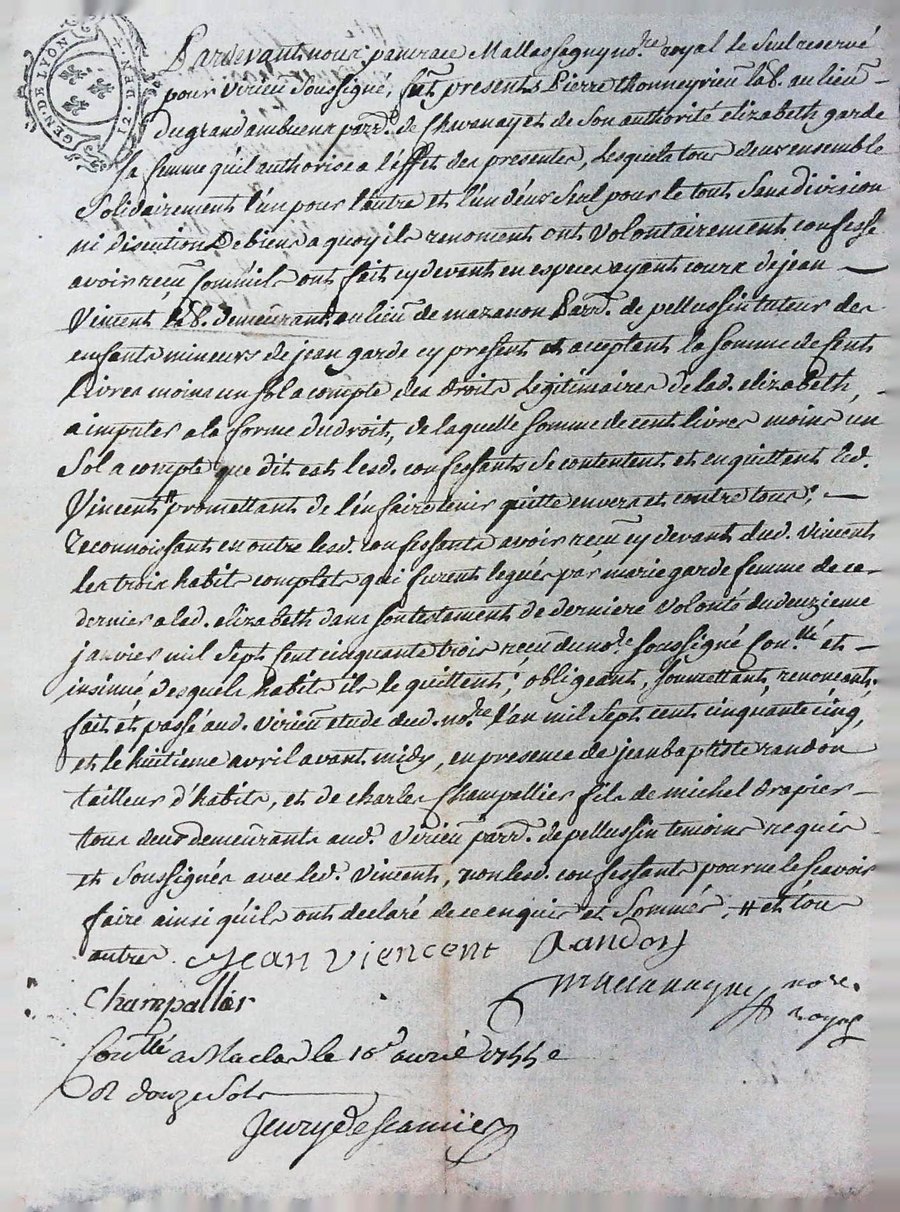 GEN. DE LYON 12. DEN.
Pardevant nous pancrace Mallassagny no.re royal le seul reservé
pour virieu soussigné, fut présents Pierre thonneyrieu lab. au lieu
du grand ambueux parr.e de Chavanay et de son authorité elizabeth garde
sa femme qu'il authorise a l'effet des presentes, lesquels tous deux ensemble
solidairement l'un pour l'autre et l'un d'eux seul pour le tout sans division
ni discution de biens a quoy ils renoncent ont volontairement confessé
avoir reçeu comm'ils ont fait cy devant en especes ayant cours de jean
Vincent lab. demeurant au lieu de mazanon parr.e de pellussin tuteur des
enfants mineurs de jean garde cy present et aceptant la somme de cents
livres moins un sol a compte des droits legitimaires de lad. elizabeth,
a imputer a la forme du droit, de laquelle somme de cent livres moins un
sol a compte que dit est lesd. confessants se contentent et en quittent led.
Vincent promettant de l'en faire tenir quitte envers et contre tous;
reconnoissants en outre lesd. confessants avoir reçeu cy devant dud. Vincent
les trois habits complets qui furent legués par marie garde femme de ce
dernier a led. elizabeth dans son testament de derniere volonté du deuzieme
janvier mil sept cent cinquante trois reçeu du no.re soussigné con.llé et
insinué, desquels habits ils le quittent; obligeant, soumettant, renonceant.
fait et passé aud. virieu etude dud. no.re l'an mil sept cent cinquante cinq,
et le huitieme avril avant midy, en presence de jean baptiste randon
tailleur d'habits, et de charles Champallier fils de michel drapier
tous deux demeurants aud. virieu parr.e de pellussin temoins requis
et soussignés avec led. Vincent, non lesd. confessants pour ne le scavoir
faire ainsi qu'ils ont declaré de ce enquis et sommés, # et tous
autres. Jean viencent Randon
Champallier no.re
royal
Con.llé a Maclas le 18e avril 1755
R douze sols